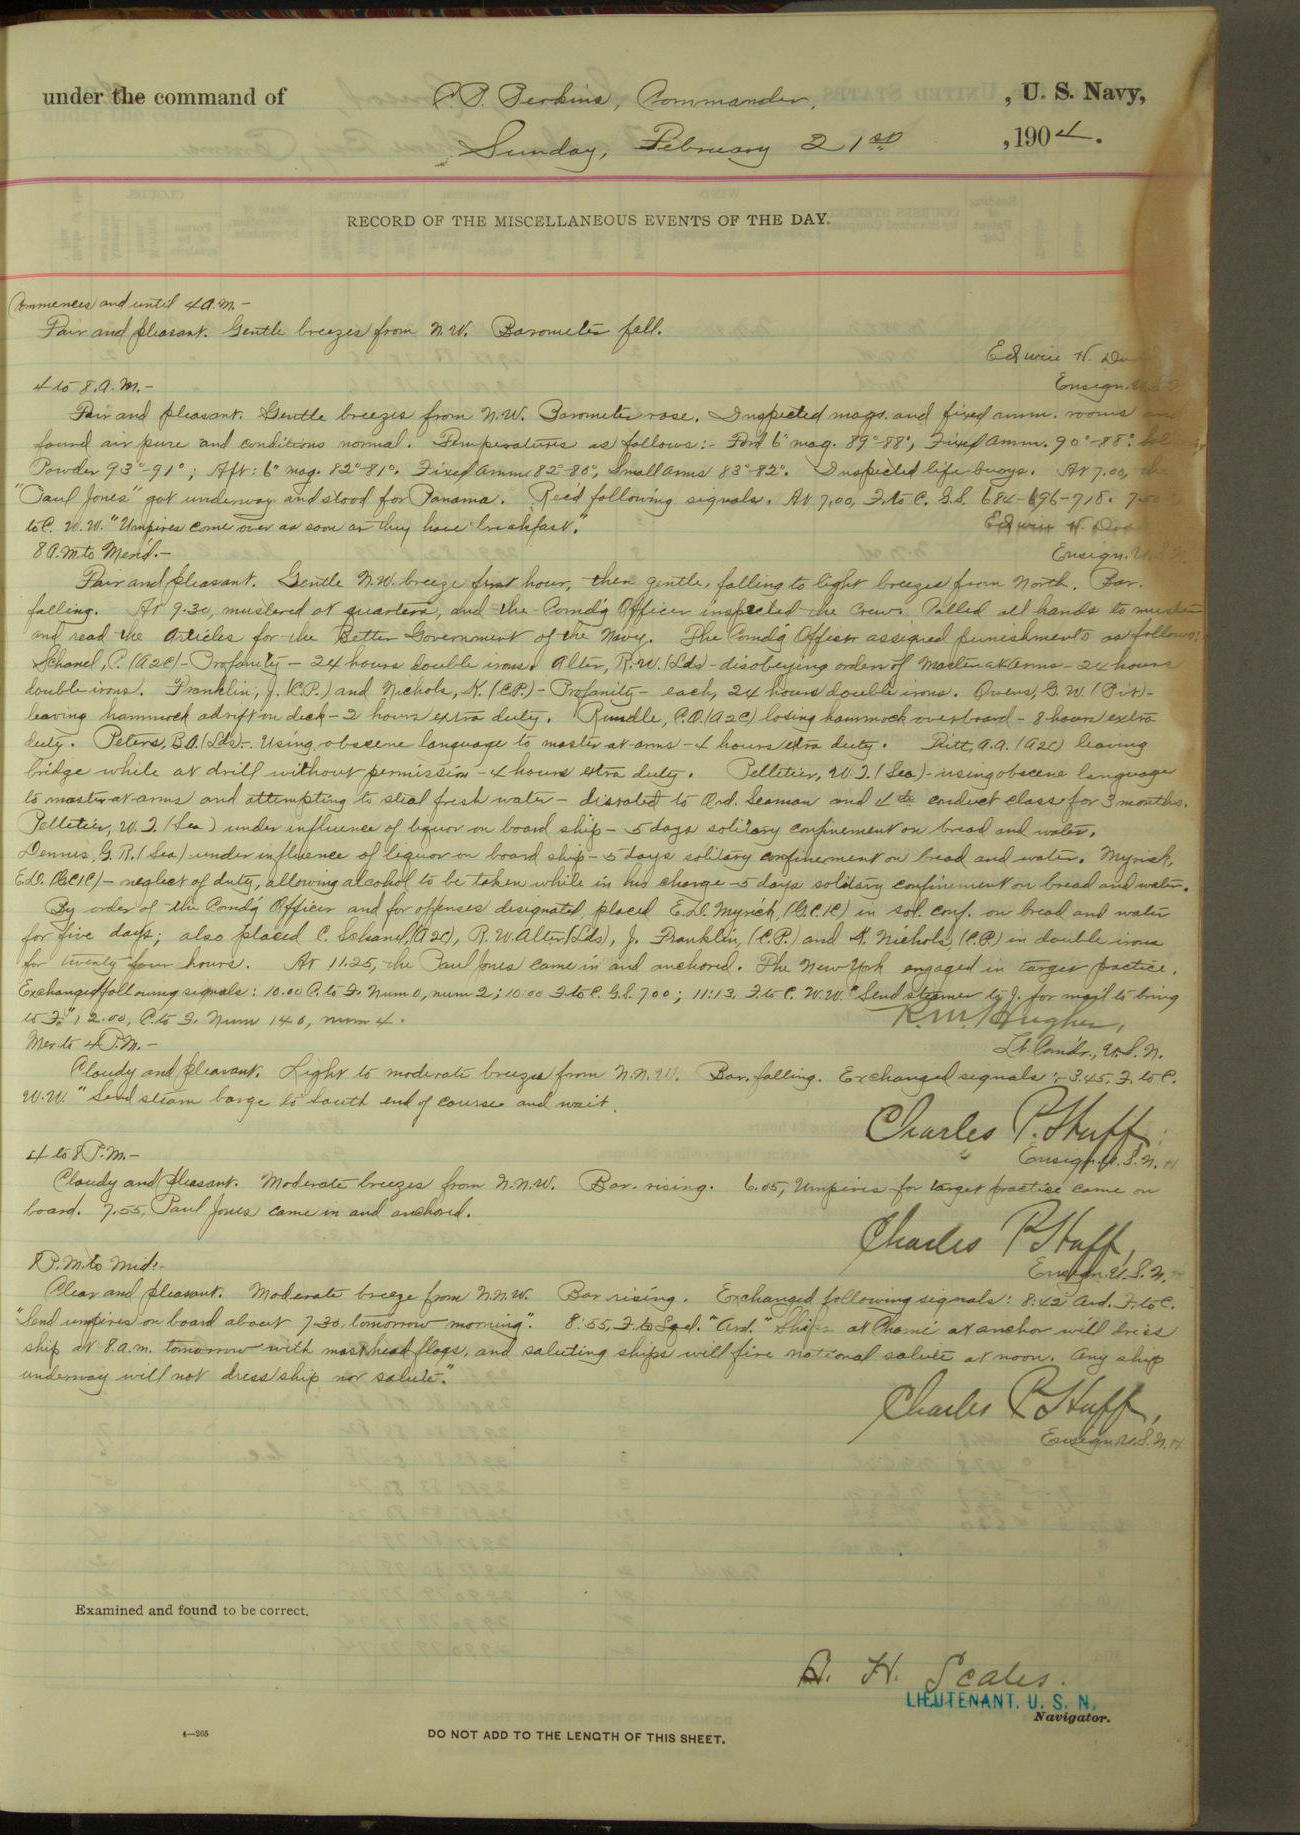 under the command of C. P. Perkins, Commander, , U. S. Navy,
Sunday, February 21st , 1904.
RECORD OF THE MISCELLANEOUS EVENTS OF THE DAY.
Commences and until 4 A.M.—
Fair and pleasant. Gentle breezes from N.W. Barometer fell.
Edwin H.
Ensign. U.S.N.
4 to 8. A.M.—
Fair and pleasant. Gentle breezes from N.W. Barometer rose. Inspected mags. and fixed amm. rooms and
found air pure and conditions normal. Temperatures as follows:- Ford 6" mag. 89°-88°, Fixed Amm. 90°-88°.
Powder 93°-91°; Aft: 6" mag. 82°-81°. Fixed Amm 82°-80°, Small Arms 83°-82°. Inspected life-buoys. At 7.00, the
"Paul Jones" got underway and stood for Panama. Rec'd following signals. At 7.00, F. to C. G.S. 684-696-718.
to C. W.W. "Umpires come over as soon as they have breakfast."
Edwin H.
8 A.M. to Merd.—
Ensign. U.S.N.
Fair and pleasant. Gentle N.W. breeze first hour, then gentle, falling to light breezes from North. Bar.
falling. At 9.30, mustered at quarters, and the Comd'g Officer inspected the crew. Called all hands to muster
and read the Articles for the Better Government of the Navy. The Comd'g Officer assigned punishments as follows:
Schanel, C. (A2C) - Profanity - 24 hours double irons. Alter, R.W. (Lds) - disobeying orders of Master at Arms - 24 hours
double irons. Franklin, J. (C.P.) and Nichols, K. (C.P.) - Profanity - each, 24 hours double irons. Owens, G. W. (Pvt) -
leaving hammock adrift on deck - 2 hours extra duty. Rundle, C.O. (A2C) losing hammock overboard - 8 hours extra
duty. Peters, B.O. (Lds) - Using obscene language to master-at-arms - 4 hours extra duty. Pitt, A.A. (A2C) leaving
bridge while at drill without permission - 4 hours extra duty. Pelletier, W.J. (Sea) - using obscene language
to master-at-arms and attempting to steal fresh water - disrated to Ord. Seaman and 4th conduct class for 3 months.
Pelletier, W.J. (Sea) under influence of liquor on board ship - 5 days solitary confinement on bread and water.
Dennis, G. R. (Sea) - under influence of liquor on board ship - 5 days solitary confinement on bread and water. Myrick,
E.D. (G.C.1C) - neglect of duty, allowing alcohol to be taken while in his charge - 5 days solitary confinement on bread and water.
By order of the Comd'g Officer and for offenses designated, placed E.D. Myrick, (G.C.1C) in sol. conf. on bread and water
for five days; also placed C. Schanel, (A2C), R.W. Alter (Lds), J. Franklin, (C.P.) and K. Nichols, (C.P.) in double irons
for twenty four hours. At 11.25, the Paul Jones came in and anchored. The New York engaged in target practice.
Exchanged following signals: 10.00 C. to F. Num 0, num 2; 10.00 F. to C. G.S. 700; 11:13. F. to C. W.W. "Send steamer to J. for mail to bring
to F."; 12.00, C. to F. Num 140, num 4.
R.M. Hughes,
Lt. Comdr., U.S.N.
Mer. to 4 P.M.—
Cloudy and pleasant. Light to moderate breezes from N.N.W. Bar. falling. Exchanged signals:- 3.45, F. to C.
W.W. "Send steam barge to south end of course and wait.
Charles P. Huff
Ensign. U.S.N.
4 to 8 P.M.—
Cloudy and pleasant. Moderate breezes from N.N.W. Bar. rising. 6.05, Umpires for target practice came on
board. 7.55, Paul Jones came in and anchored.
Charles P. Huff,
Ensign. U.S.N.
8 P.M. to Mid:-
Clear and pleasant. Moderate breeze from N.N.W. Bar rising. Exchanged following signals: 8:42 Ard. F. to C.
"Send umpires on board about 7.30, tomorrow morning". 8:55, F. to Sqd. "Ard." Ships at Chamé at anchor will dress
ship at 8.a.m. tomorrow with masthead flags, and saluting ships will fire national salute at noon. Any ship
underway will not dress ship nor salute."
Charles P. Huff,
Ensign. U.S.N.
Examined and found to be correct.
A. H. Scales.
LIEUTENANT. U. S. N.
Navigator.
4—265
DO NOT ADD TO THE LENGTH OF THIS SHEET.